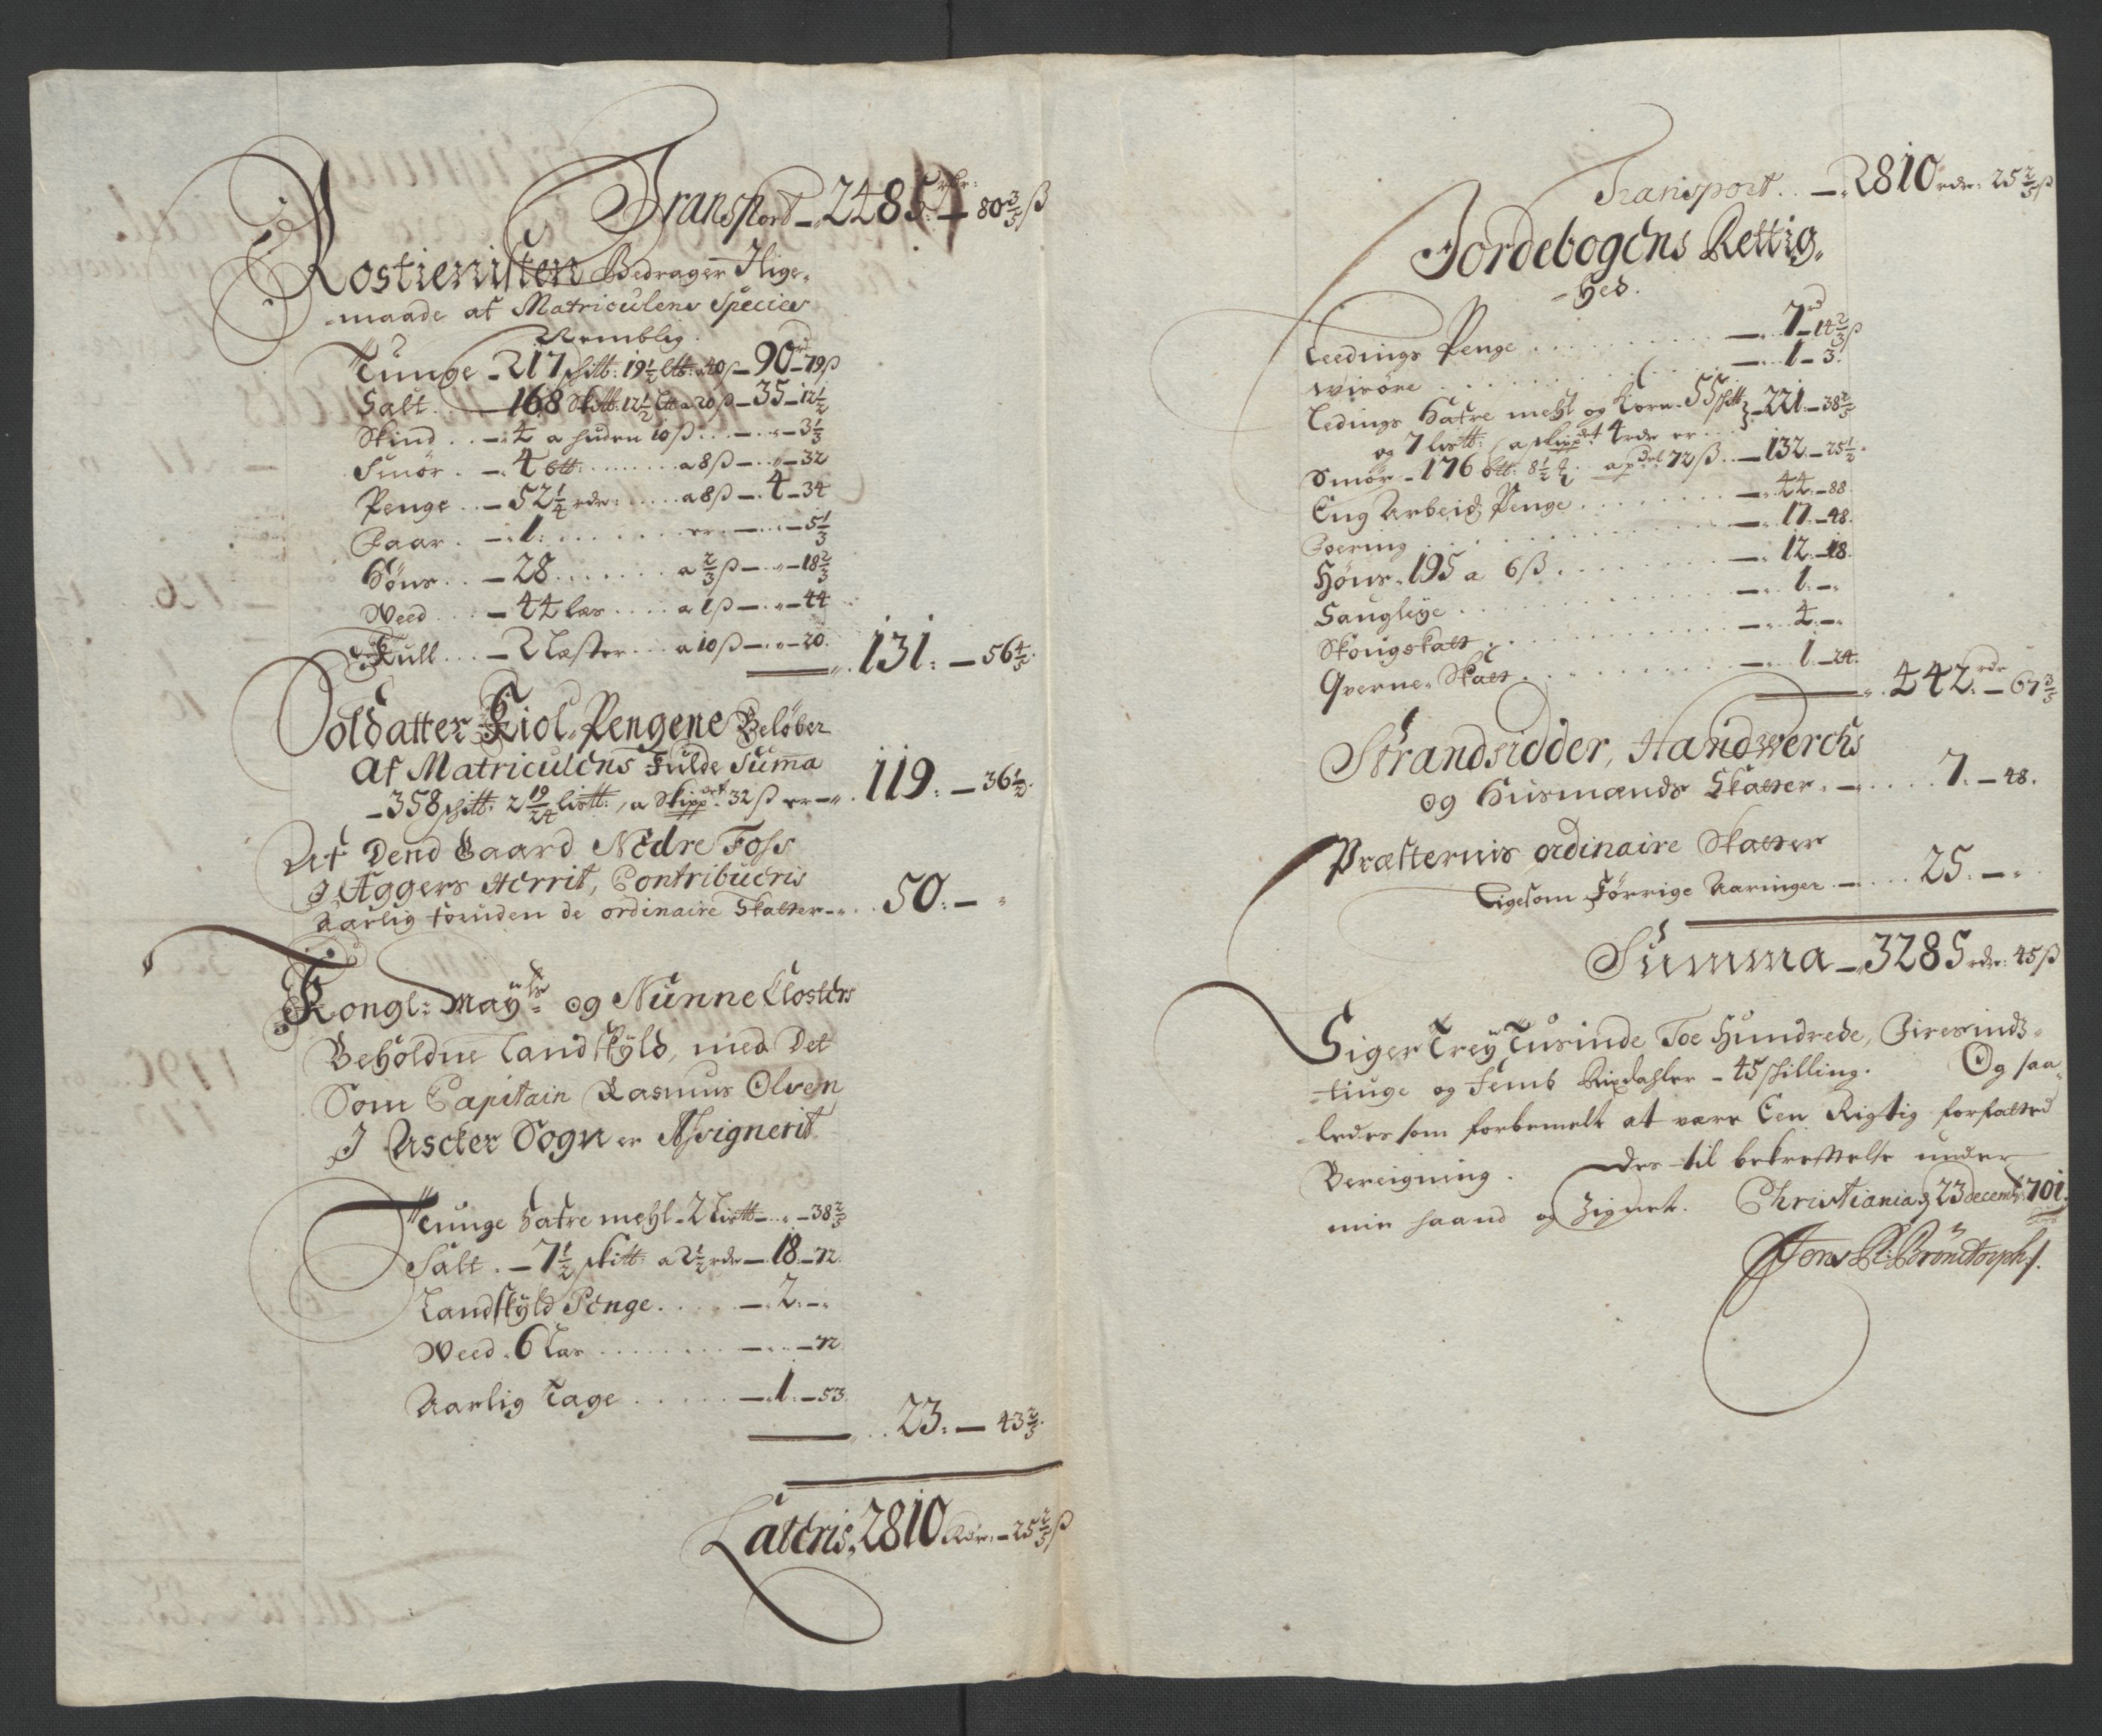 Transport - 2485 rdr: - 80 3/5 ß
Rostienisten Bedrager Jlige-
maade af Matriculens Species
Nemblig
Tunge - 217 skitt: 19 1/2 ltt: a 40 ß - 90 rd - 79 ß
Salt - 168 Skitt: 12 1/2 ltt a 20 ß - 35 - 12 1/2
Skind . . - 4 a huden 10 ß . . . - " - 3 1/3
Smör . - 4 btt: . . . . a 8 ß - " - 32
Penge . . - 52 1/4 rdr: . . . a 8 ß - 4 - 34
Faar . - 1: . . . . . er: - " - 5 1/3
Höns . . - 28 . . . . . a 2/3 ß - " - 18 2/3
Weed . . - 44 læs . . . a 1 ß - " - 44
Kull . . . - 2 Læster . . a 10 ß - " - 20.
131: - 56 4/5
Soldatter Kiol-Pengene Beløber
af Matriculens Fulde Summa
- 358 skitt: 2 19/24 listt:, a Skippdt 32 ß er - 119: - 36 1/2
Af Dend Gaard Nedre Foss
J Aggers Herrit, Contribueris
Aarlig foruden de ordinaire Skatter - . . 50: - "
Kongl: Mayts og Nunne Closters
Beholdne Landskyld, med Det
Som Capitain Rasmus Olven
J Ascker Sogn er Assignerit
Tunge Hafre mehl - 2 Listt - " - 38 2/5
Salt . - 7 1/2 skitt: a 2 1/2 rdr - 18 - 72
Landskyld Penge . . . . - 2: - "
Weed . 6 Læs . . . . . . - " - 72
Aarlig Tage . . . . . - 1 - 53
23: - 43 2/5
Lateris, 2810 Rdr: - 25 2/5 ß
Transport . . - 2810 rdr: 25 2/5 ß
Jordebogens Rettig-
- hed.
Leedings Penge . . . . . . - 7 rd - 14 2/3 ß
Wisöre . . . . . . . . - 1 - 3.
Ledings Hafre mehl og Korn - 55 skitt
og 7 listt: a skippdt 4 rdr er . . - 221 - 38 2/5
Smör - 176 btt: 8 1/2 . a pdel 72 ß . - 132 - 25 1/2
Eng Arbeids Penge . . . . . - 44 - 88
Foering . . . . . . . . . - 17 - 48.
Höns - 195 a 6 ß . . . . . . - 12 - 18.
Saugleye . . . . . . . . - 1 - "
Skougskatt . . . . . . . . - 4 - "
Qverne-Skatt . . . . . . . - 1 - 24.
442 rdr - 67 3/5
Strandsidder, Handwerchs
og Husmænds Skatter . - . . . 7. - 48.
Præsternis ordinaire Skatter
Ligesom Förrige Aaringer . - . . . 25. - "
Summa - 3285 rdr: 45 ß
Siger Trey Tusinde Toe Hundrede, Firesinds-
tiuge og Femb Rixdahler - 45 skilling. Og saa-
ledes som forbemelt at være Een Rigtig forfatted
Bereigning. Des til bekreftelse under
min haand og Zignet. Christiania d 23 decemb: 1701.
Jens P: Bröndtorph.